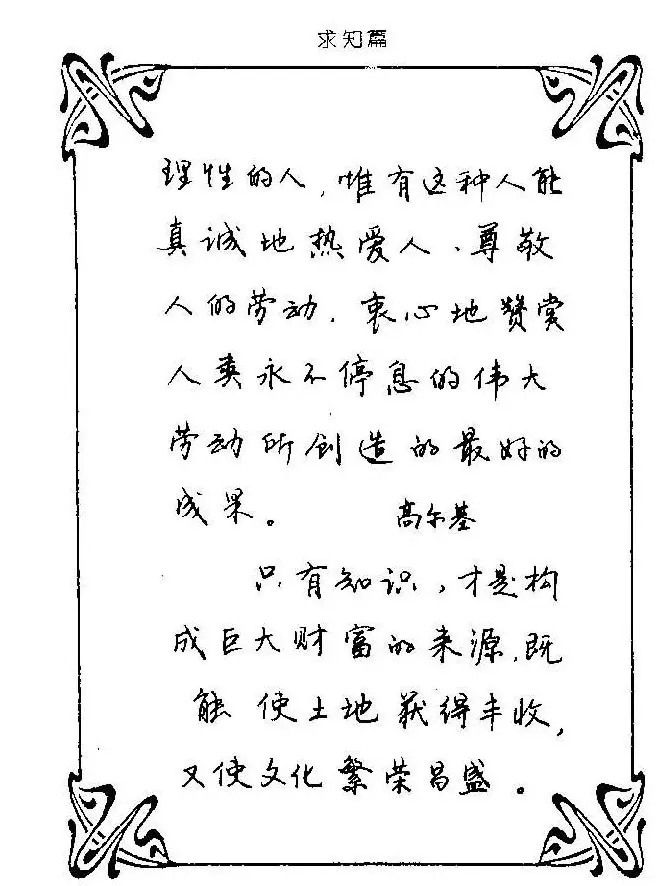 求知篇
理性的人，惟有这种人能
真诚地热爱人、尊敬
人的劳动，衷心地赞赏
人类永不停息的伟大
劳动所创造的最好的
成果。 高尔基
只有知识，才是构
成巨大财富的来源，既
能使土地获得丰收，
又使文化繁荣昌盛。